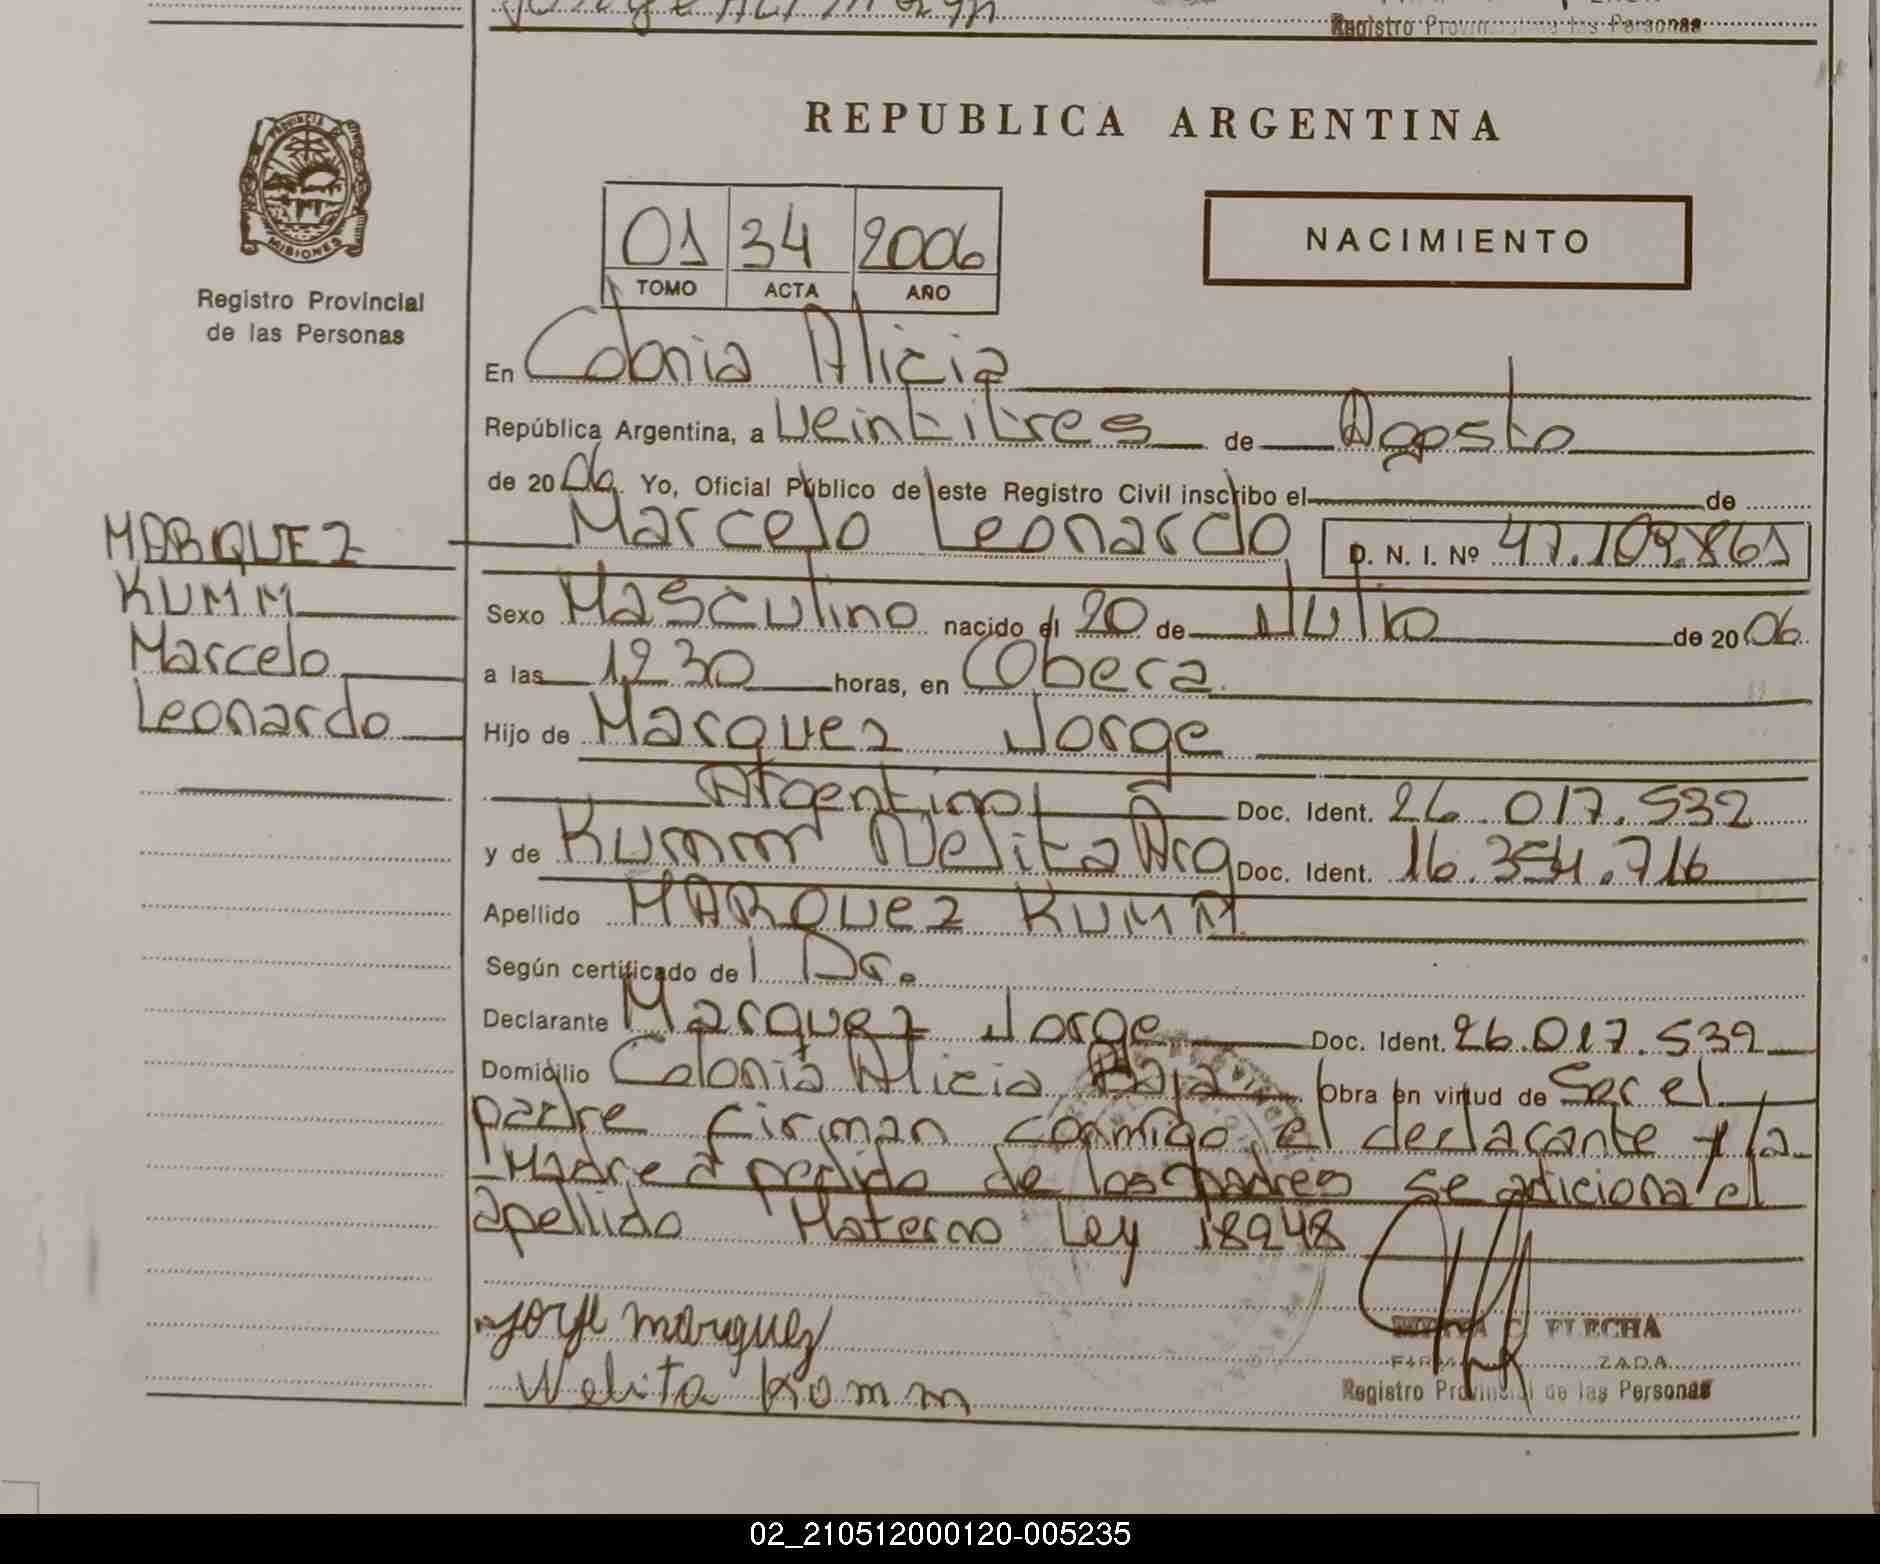 Registro Provincial de las Personas
PROVINCIA DE
MISIONES
Registro Provincial
de las Personas
REPUBLICA ARGENTINA
01 34 2006
TOMO ACTA AÑO
NACIMIENTO
En Colonia Alicia
República Argentina, a veintitres de Agosto
de 2006. Yo, Oficial Público de este Registro Civil inscribo el de
MARQUEZ
KUMM
Marcelo
Leonardo
Marcelo Leonardo D. N. I. Nº 47.109.861
Sexo Masculino nacido el 20 de Julio de 2006.
a las 1230 horas, en Obera.
Hijo de Marquez Jorge
Argentino Doc. Ident. 26.017.532
y de Kumm Nelita Arg Doc. Ident. 16.354.716
Apellido MARQUEZ KUMM.
Según certificado de Dr.
Declarante Marquez Jorge Doc. Ident. 26.017.532
Domicilio Colonia Alicia Baja. Obra en virtud de Ser el
padre firman conmigo el declarante y la
Madre a pedido de los padres se adiciona el
apellido Materno Ley 18248
Jorge marquez
Nelita Komm
FLECHA
Registro Provincial de las Personas
02_210512000120-005235